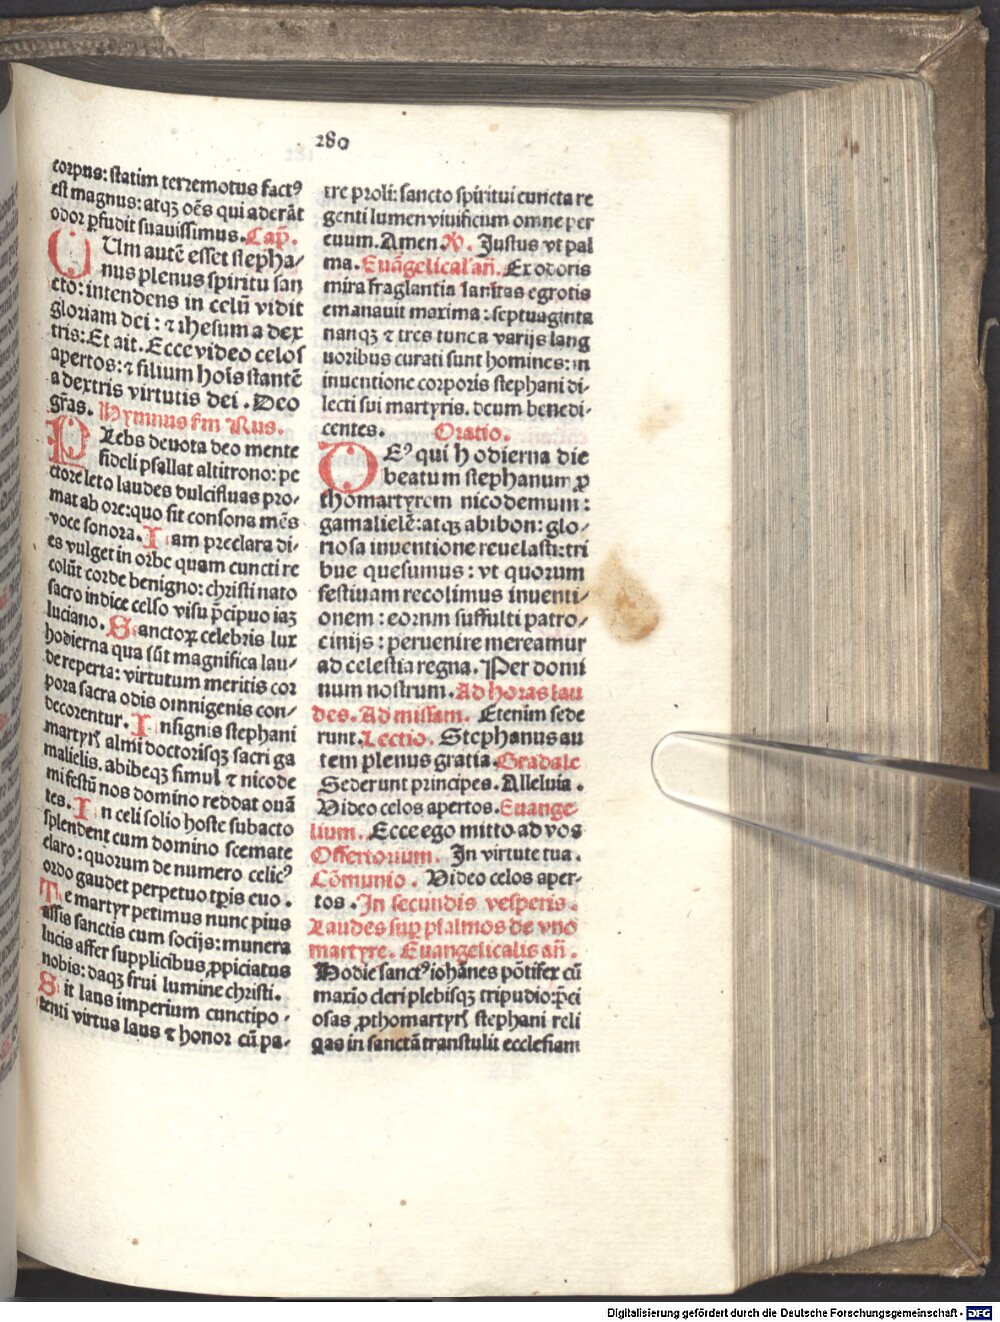 280
corpus: statim terremotus fact⁹
est magnus: atqʒ oēs qui aderāt
odor ꝑfudit suauissimus. Cap̄.
CUm autē esset stepha⸗
nus plenus spiritu san
cto: intendens in celū vidit
gloriam dei: ⁊ ihesum a dex
tris: Et ait. Ecce video celos
apertos: ⁊ filium hoīs stantē
a dextris virtutis dei. Deo
gr̄as. Hymnus sm̄ Rus.
PLebs deuota deo mente
fideli psallat altitrono: pe
ctore leto laudes dulcifluas pro⸗
mat ab ore: quo sit consona mēs
voce sonora. Iam preclara di⸗
es vulget in orbe quam cuncti re
colūt corde benigno: christi nato
sacro indice celso visu p̄cipuo iaʒ
luciano. Sanctoꝝ celebris lux
hodierna qua sūt magnifica lau⸗
de reperta: virtutum meritis cor
pora sacra odis oinnigenis con⸗
decorentur. Insignis stephani
martyrꝭ almi doctorisqʒ sacri ga
malielis. abibeqʒ simul ⁊ nicode
mi festū nos domino reddat ouā
tes. In celi solio hoste subacto
splendent cum domino scemate
claro: quorum de numero celic⁹
ordo gaudet perpetuo tꝑis euo.
Te martyr petimus nunc pius
assis sanctis cum socijs: munera
lucis affer supplicibus ꝓpiciatus
nobis: daqʒ frui lumine christi.
Sit laus imperium cunctipo⸗
tenti virtus laus ⁊ honor cū pa⸗
tre proli: sancto spiritui cuncta re
genti lumen viuificum omne per
euum. Amen. V̄. Justus vt pal
ma. Euāgelical' an̄. Ex odoris
mira fraglantia sanitas egrotis
emanauit maxima: septuaginta
nanqʒ ⁊ tres tunc a varijs lang
uoribus curati sunt homines: in
inuentione corporis stephani di⸗
lecti sui martyris. deum benedi⸗
centes. Oratio.
DE⁹ qui hodierna die
beatum stephanum ꝓ
thomartyrem nicodemum:
gamalielē: atqʒ abibon: glo⸗
riosa inuentione reuelasti: tri
bue quesumus: vt quorum
festiuam recolimus inuenti⸗
onem: eorum suffulti patro⸗
cinijs: peruenire mereamur
ad celestia regna. Per domi
num nostrum. Ad horas lau
des. Ad missam. Etenim sede
runt. Lectio. Stephanus au
tem plenus gratia. Gradale
Sederunt principes. Alleluia.
Video celos apertos. Euange
lium. Ecce ego mitto ad vos
Offertorium. In virtute tua.
Cōmunio. Video celos aper⸗
tos. In secundis vesperis.
Laudes suꝑ psalmos de vno
martyre. Euangelicalis an̄.
Hodie sanct⁹ iohānes pōtifex cū
maxīo cleri plebisqʒ tripudio: p̄ci
osas ꝓthomartyrꝭ stephani reli
qas in sanctā transtulit ecclesiam
Digitalisierung gefördert durch die Deutsche Forschungsgemeinschaft - DFG